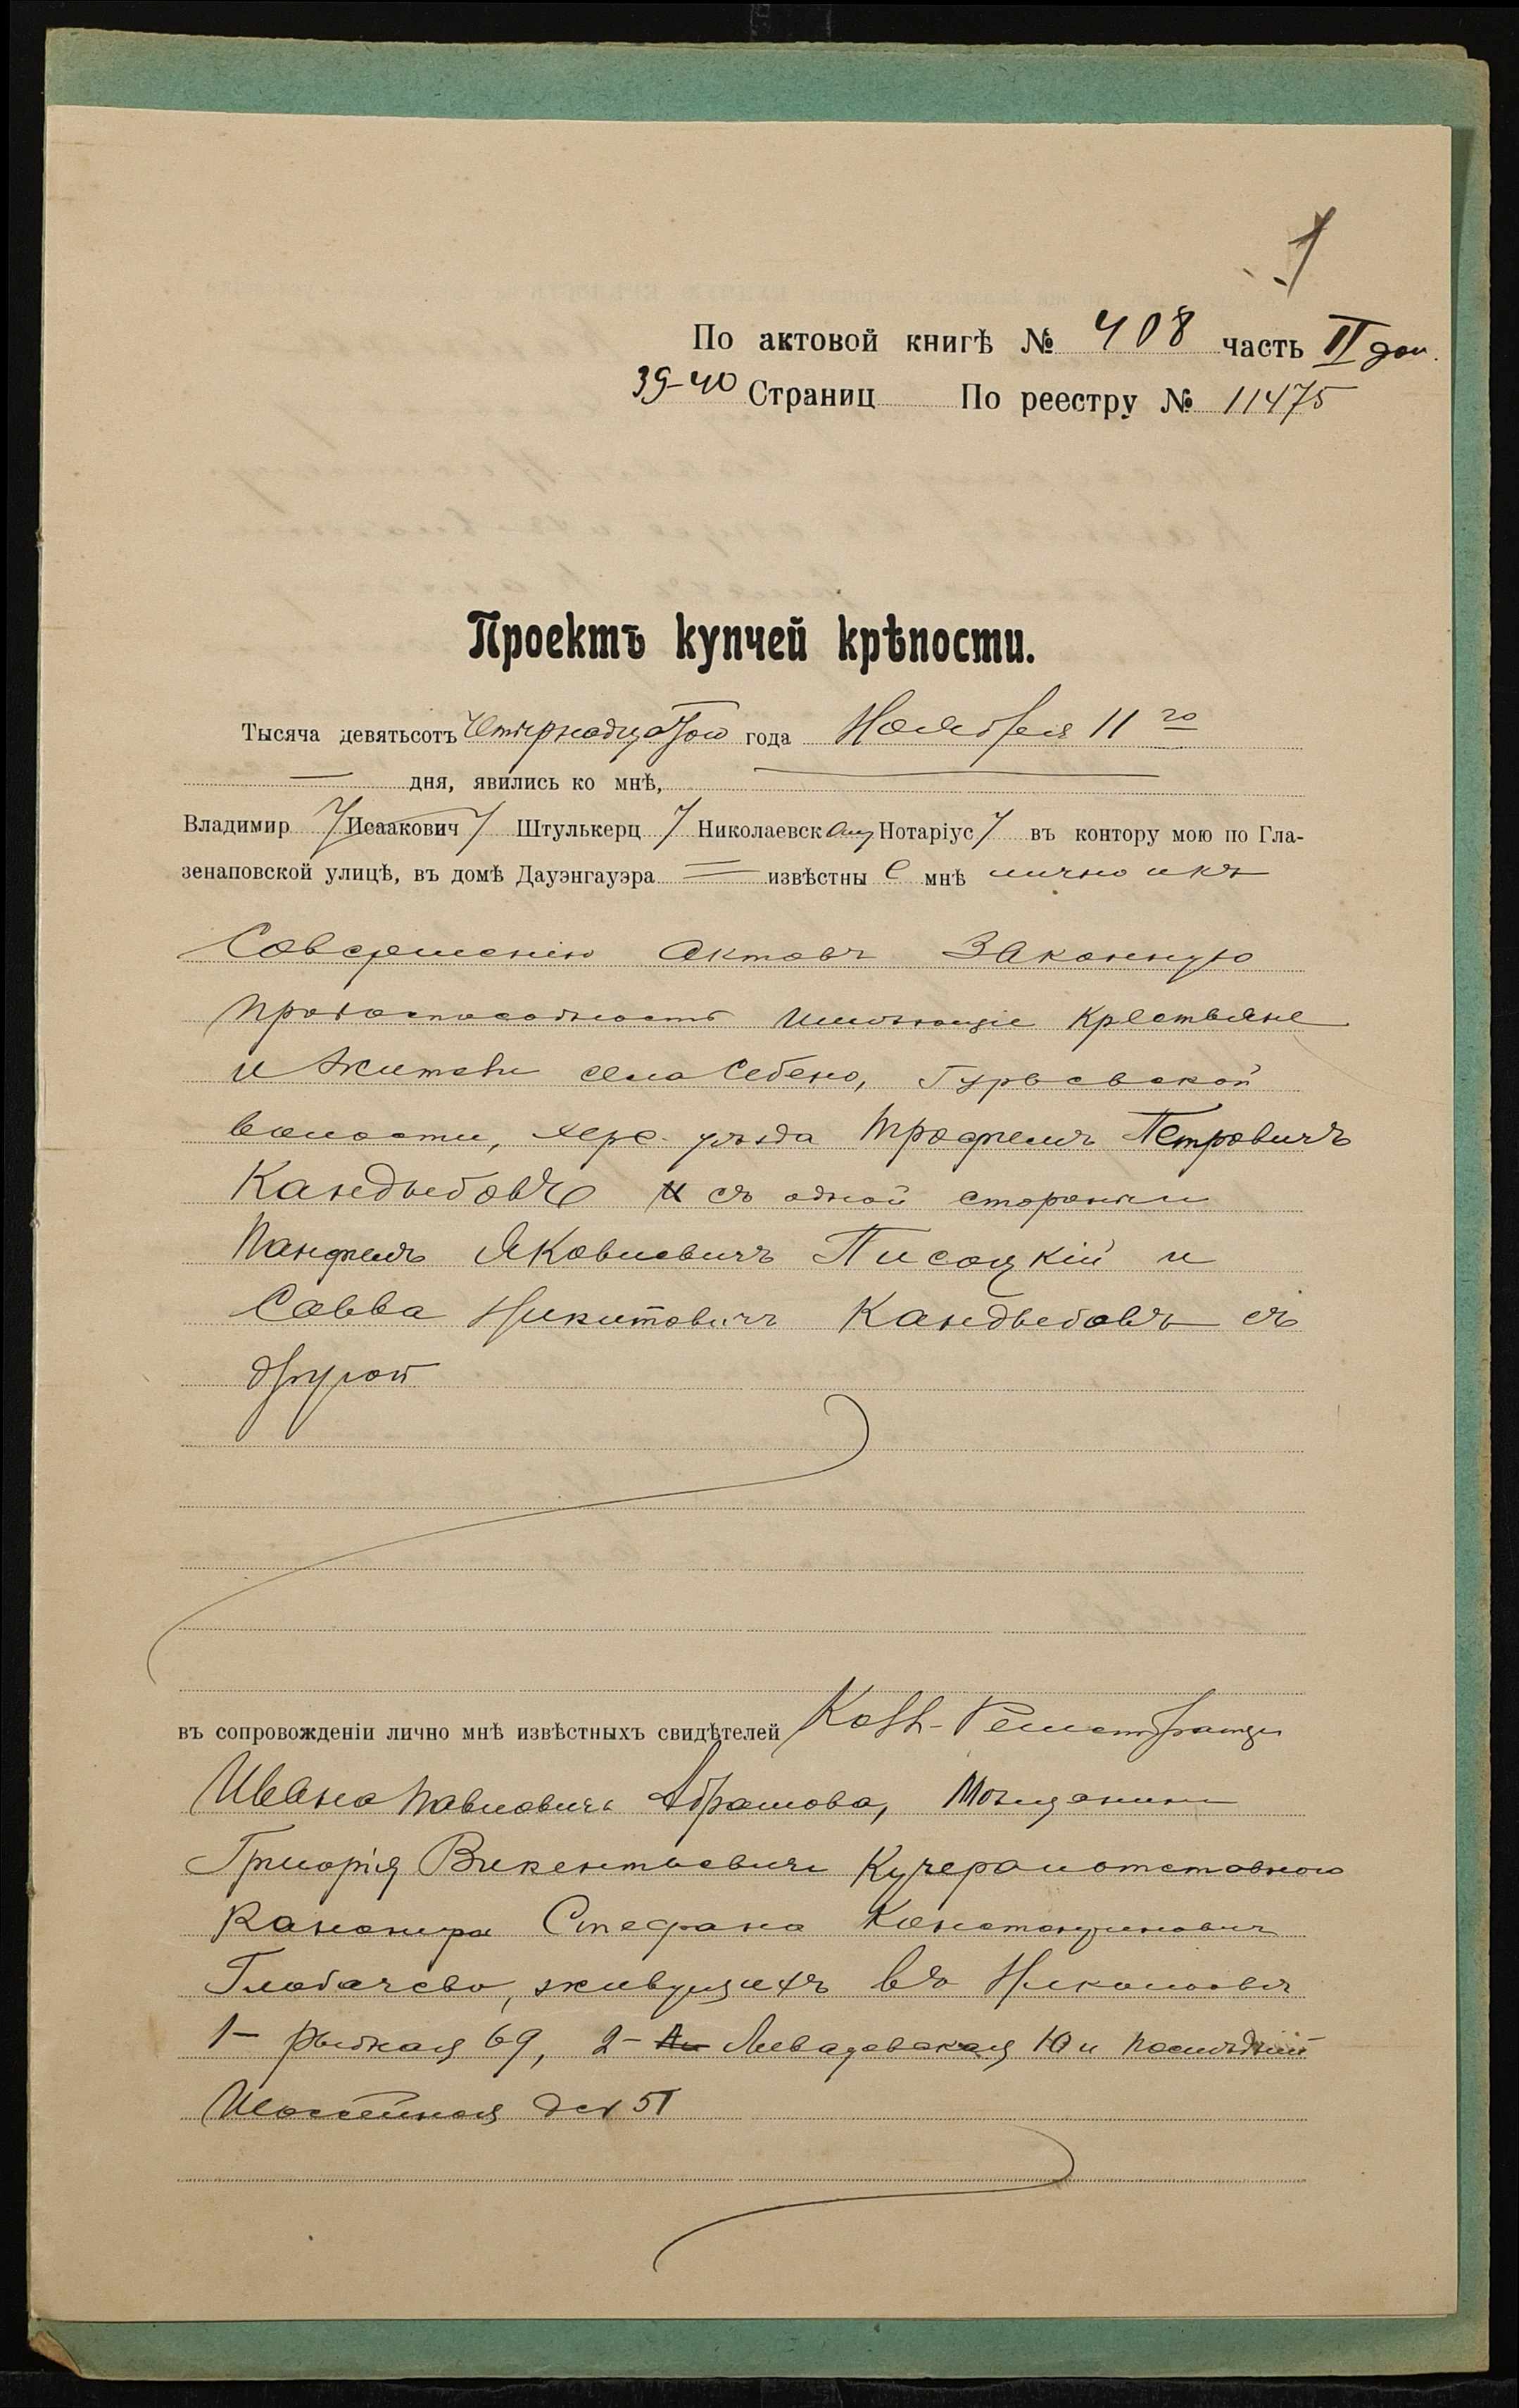 1
По актовой книгѣ № 408 часть II доп.
39-40 Страниц По реестру № 11475
Проектъ купчей крѣпости.
Тысяча девятьсотъ Четырнадцатого года Ноября 11 го
дня, явились ко мнѣ,
Владимир Исаакович Штулькерц Николаевск Нотаріус въ контору мою по Гла-
зенаповской улицѣ, въ домѣ Дауэнгауэра извѣстные мнѣ лично и къ
Совершенію актовъ Законную
правоспособность имѣющіе крестьяне
и жители села Себено, Гурьевской
волости, Херс. уѣзда Трофимъ Петровичъ
Кандыбовъ съ одной стороны и
Панфилъ Яковлевичъ Писоцкій и
Савва Никитовичъ Кандыбовъ съ
другой
въ сопровожденіи лично мнѣ извѣстныхъ свидѣтелей Колл- Регистратора
Ивана Павловича Абрамова, Мѣщанина
Григорія Викентьевича Кучера и отставного
Канонира Стефана Константиновича
Глобачева, живущихъ въ Николаевѣ
1- Рыбная 69, 2- Левадовская 10 и послѣдній
Шоссейная 51